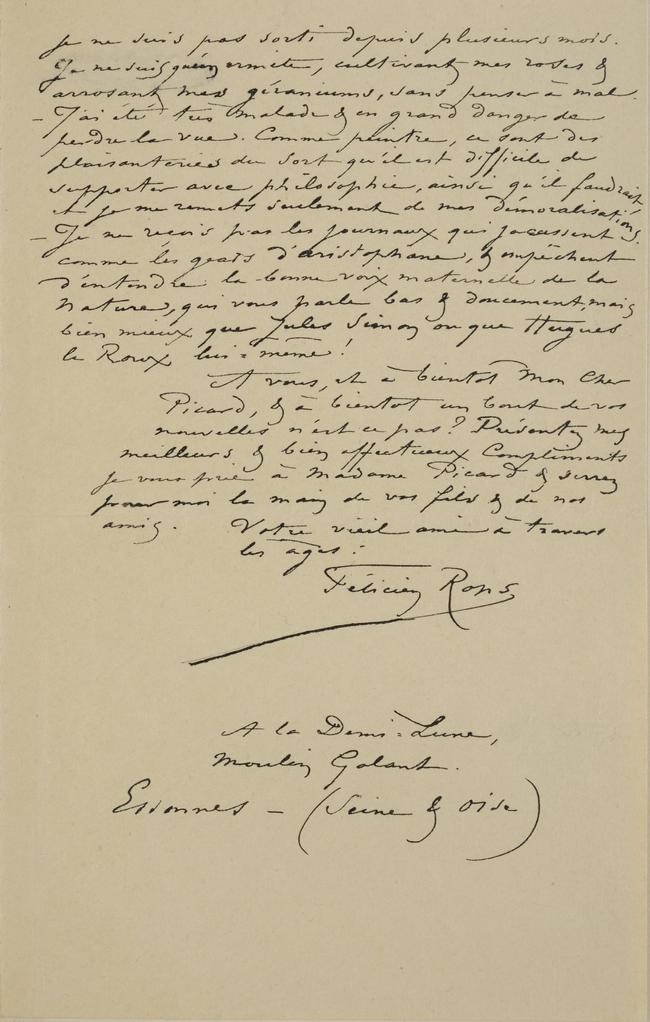 Je ne suis pas sorti depuis plusieurs mois.
Je ne suis qu'un ermite, cultivant mes roses &
arrosant mes géraniums, sans penser à mal.
– J'ai été très malade & en grand danger de
perdre la vue. Comme peintre, ce sont des
plaisanteries du sort qu'il est difficile de
supporter avec philosophie, ainsi qu'il faudrait
et je me remets seulement de mes démoralisations.
– Je ne reçois pas les journaux qui jacassent
comme les geais d'aristophane, & empêchent
d'entendre la bonne voix maternelle de la
Nature, qui vous parle bas & doucement, mais
bien mieux que Jules Simon ou que Hugues
le Roux lui-même!
A vous, et à bientot Mon Cher
Picard, & à bientot un bout de vos
nouvelles n'est ce pas? Présentez mes
meilleurs & bien affectueux Compliments
je vous prie à Madame Picard & serrez
pour moi la main de vos fils & de nos
amis. Votre vieil ami à travers
les âges:
Félicien Rops
A la Demi-Lune,
Moulin Galant.
Essonnes – (Seine & Oise)